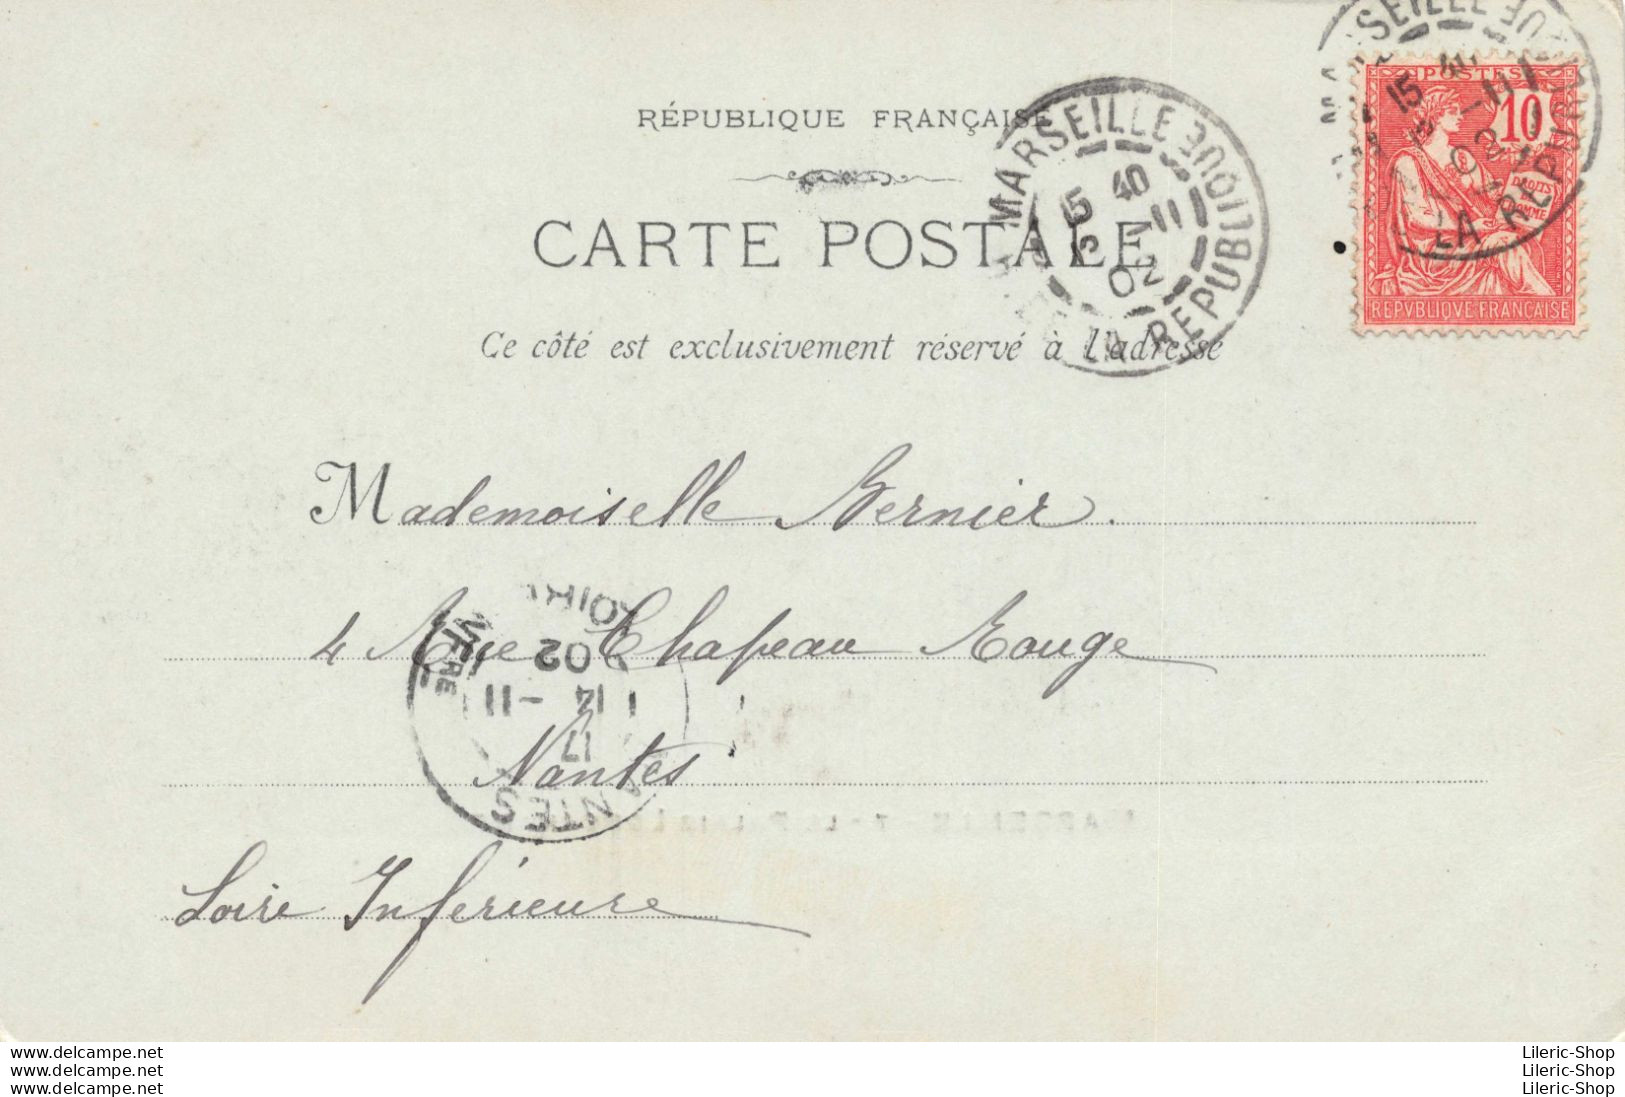 RÉPUBLIQUE FRANÇAISE
CARTE POSTALE
Ce côté est exclusivement réservé à l'adresse
MARSEILLE LA REPUBLIQUE
15 40
-11
02
MARSEILLE LA REPUBLIQUE
15 40
-11
02
POSTES
10
DROITS
HOMME
REPVBLIQVE FRANÇAISE
Mademoiselle Bernier.
4 Rue Chapeau Rouge
Nantes
Loire Inférieure
NANTES LOIRE INFRE
17
14 -11
02
www.delcampe.net
www.delcampe.net
www.delcampe.net
Lileric-Shop
Lileric-Shop
Lileric-Shop